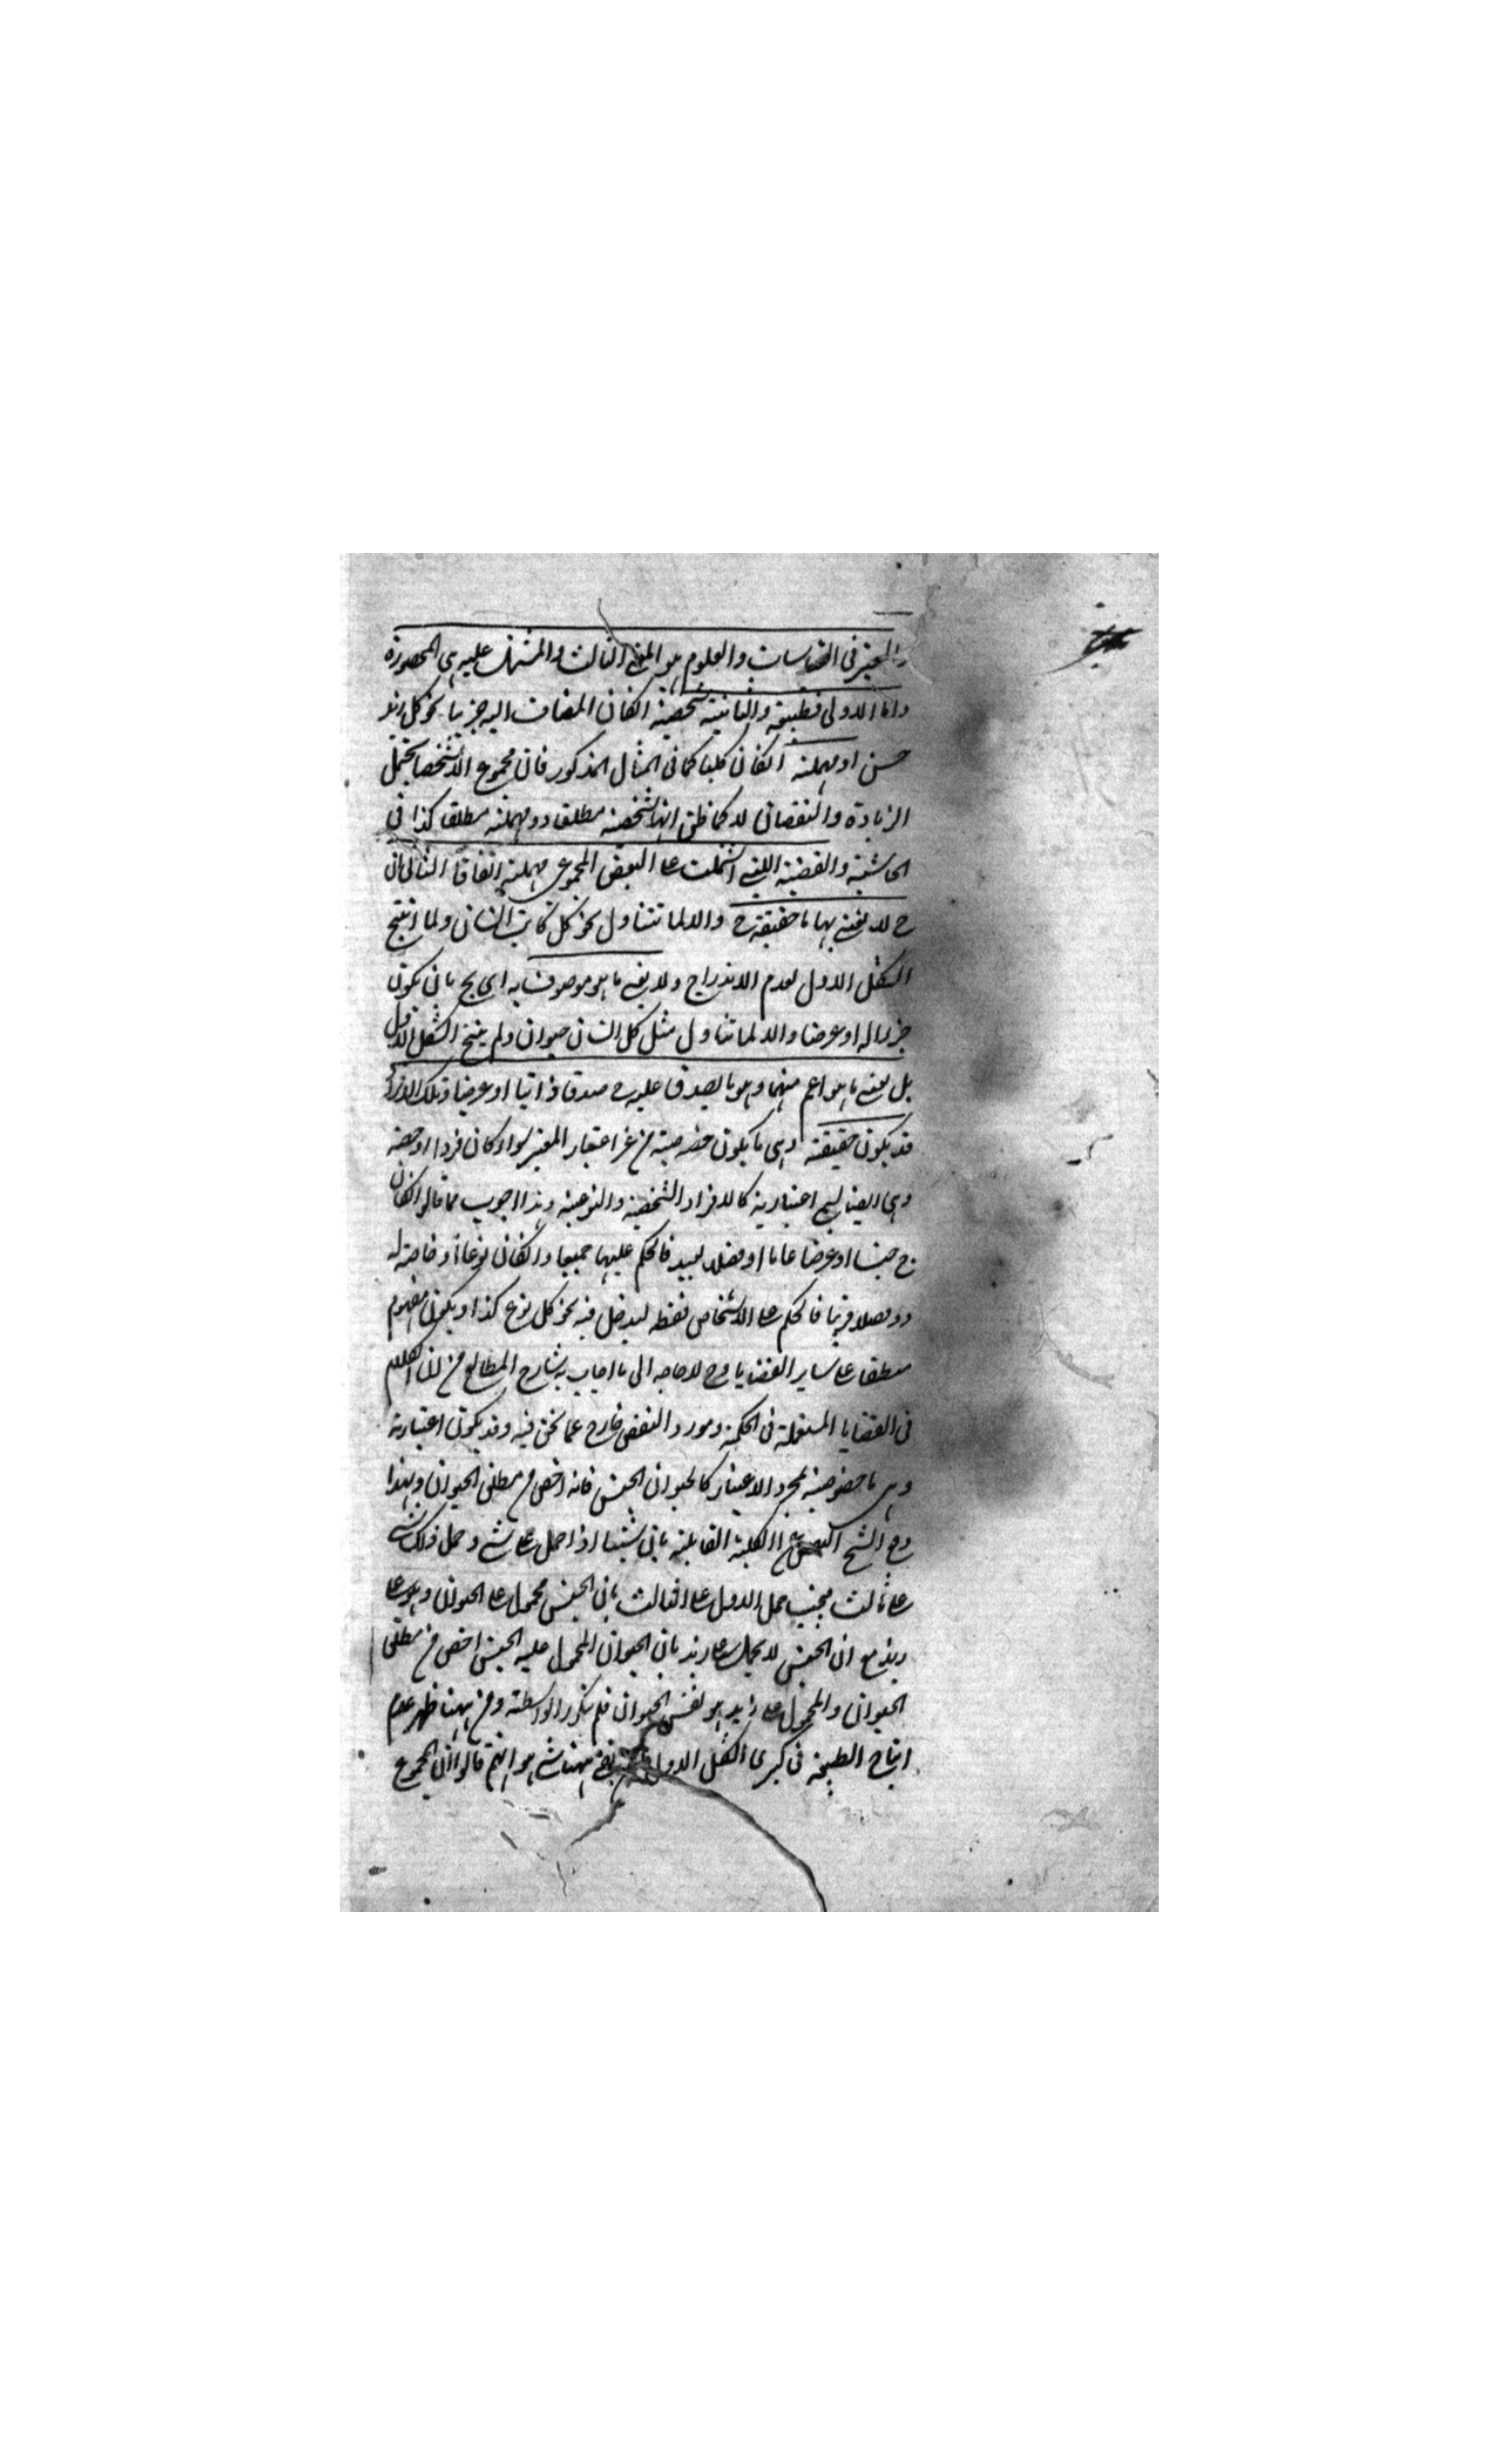 والمعتبر في القياسات والعلوم هو المعنى الثالث والمشتمل عليه هي المحصورة
واما الاولى فطبيعة والثانية شخصية انكان المضاف اليه جزئيا نحو كل زيد
حسن او مهملة انكان كليا كما في المثال المذكور فان مجموع الاشخاص يحتمل
الزيادة والنقصان لا كما ظن انها شخصية مطلقا او مهملة مطلقا كذا في
الحاشية والقضية التي اشتملت على البعض المجموعي مهملة اتفاقا الثاني ان
ج لا نعنى بها ما حقيقته ج والا لما تتناول نحو كل كاتب انسان ولما انتج
الشكل الاول لعدم الاندراج ولا نعنى ما هو موصوف به اى بج بان يكون
جزءا له او عرضا والا لما تناول مثل كل انسان حيوان ولم ينتج الشكل الاول
بل نعنى ما هو اعم منهما وهو ما يصدق عليه ج صدقا ذاتيا او عرضيا وتلك الافراد
قد يكون حقيقة وهى ما يكون خصوصيته من غير اعتبار المعتبر سواء كان فردا او حصة
وهى ايضا ليس اعتبارية كالافراد الشخصية والنوعية وهذا اجوب مما قالوا انكان
ج جنسا او عرضا عاما او فصلا بعيد فالحكم عليها جميعا وانكان نوعا او خاصة له
او فصلا قريبا فالحكم على الاشخاص فقط ليدخل فيه نحو كل نوع كذا ويكون مفهوم
منطبقا على ساير القضايا وح لا حاجه الى ما اجاب به شارح المطالع من ان الكلام
في القضايا المستعملة في الحكمة ومورد النقض خارج عما نحن فيه وقد يكون اعتبارية
وهى ما خصوصيته بمجرد الاعتبار كالحيوان الجنس فانه اخص من مطلق الحيوان وبهذا
دفع الشيخ الكلية القايلة بان شيئا اذا حمل على شى وحمل ذلك الشى
على ثالث فيجب حمل الاول على الثالث بان الجنس محمول على الحيوان وهو على
زيد مع ان الجنس لا يحمل على زيد بان الحيوان المحمول عليه الجنس اخص من مطلق
الحيوان والمحمول على زيد هو نفس الحيوان فلم يتكرر الواسطة ومن ههنا ظهر عدم
انتاج الطبيعة في كبرى الشكل الاول بقى ههنا شى هو انهم قالوا ان المجموع